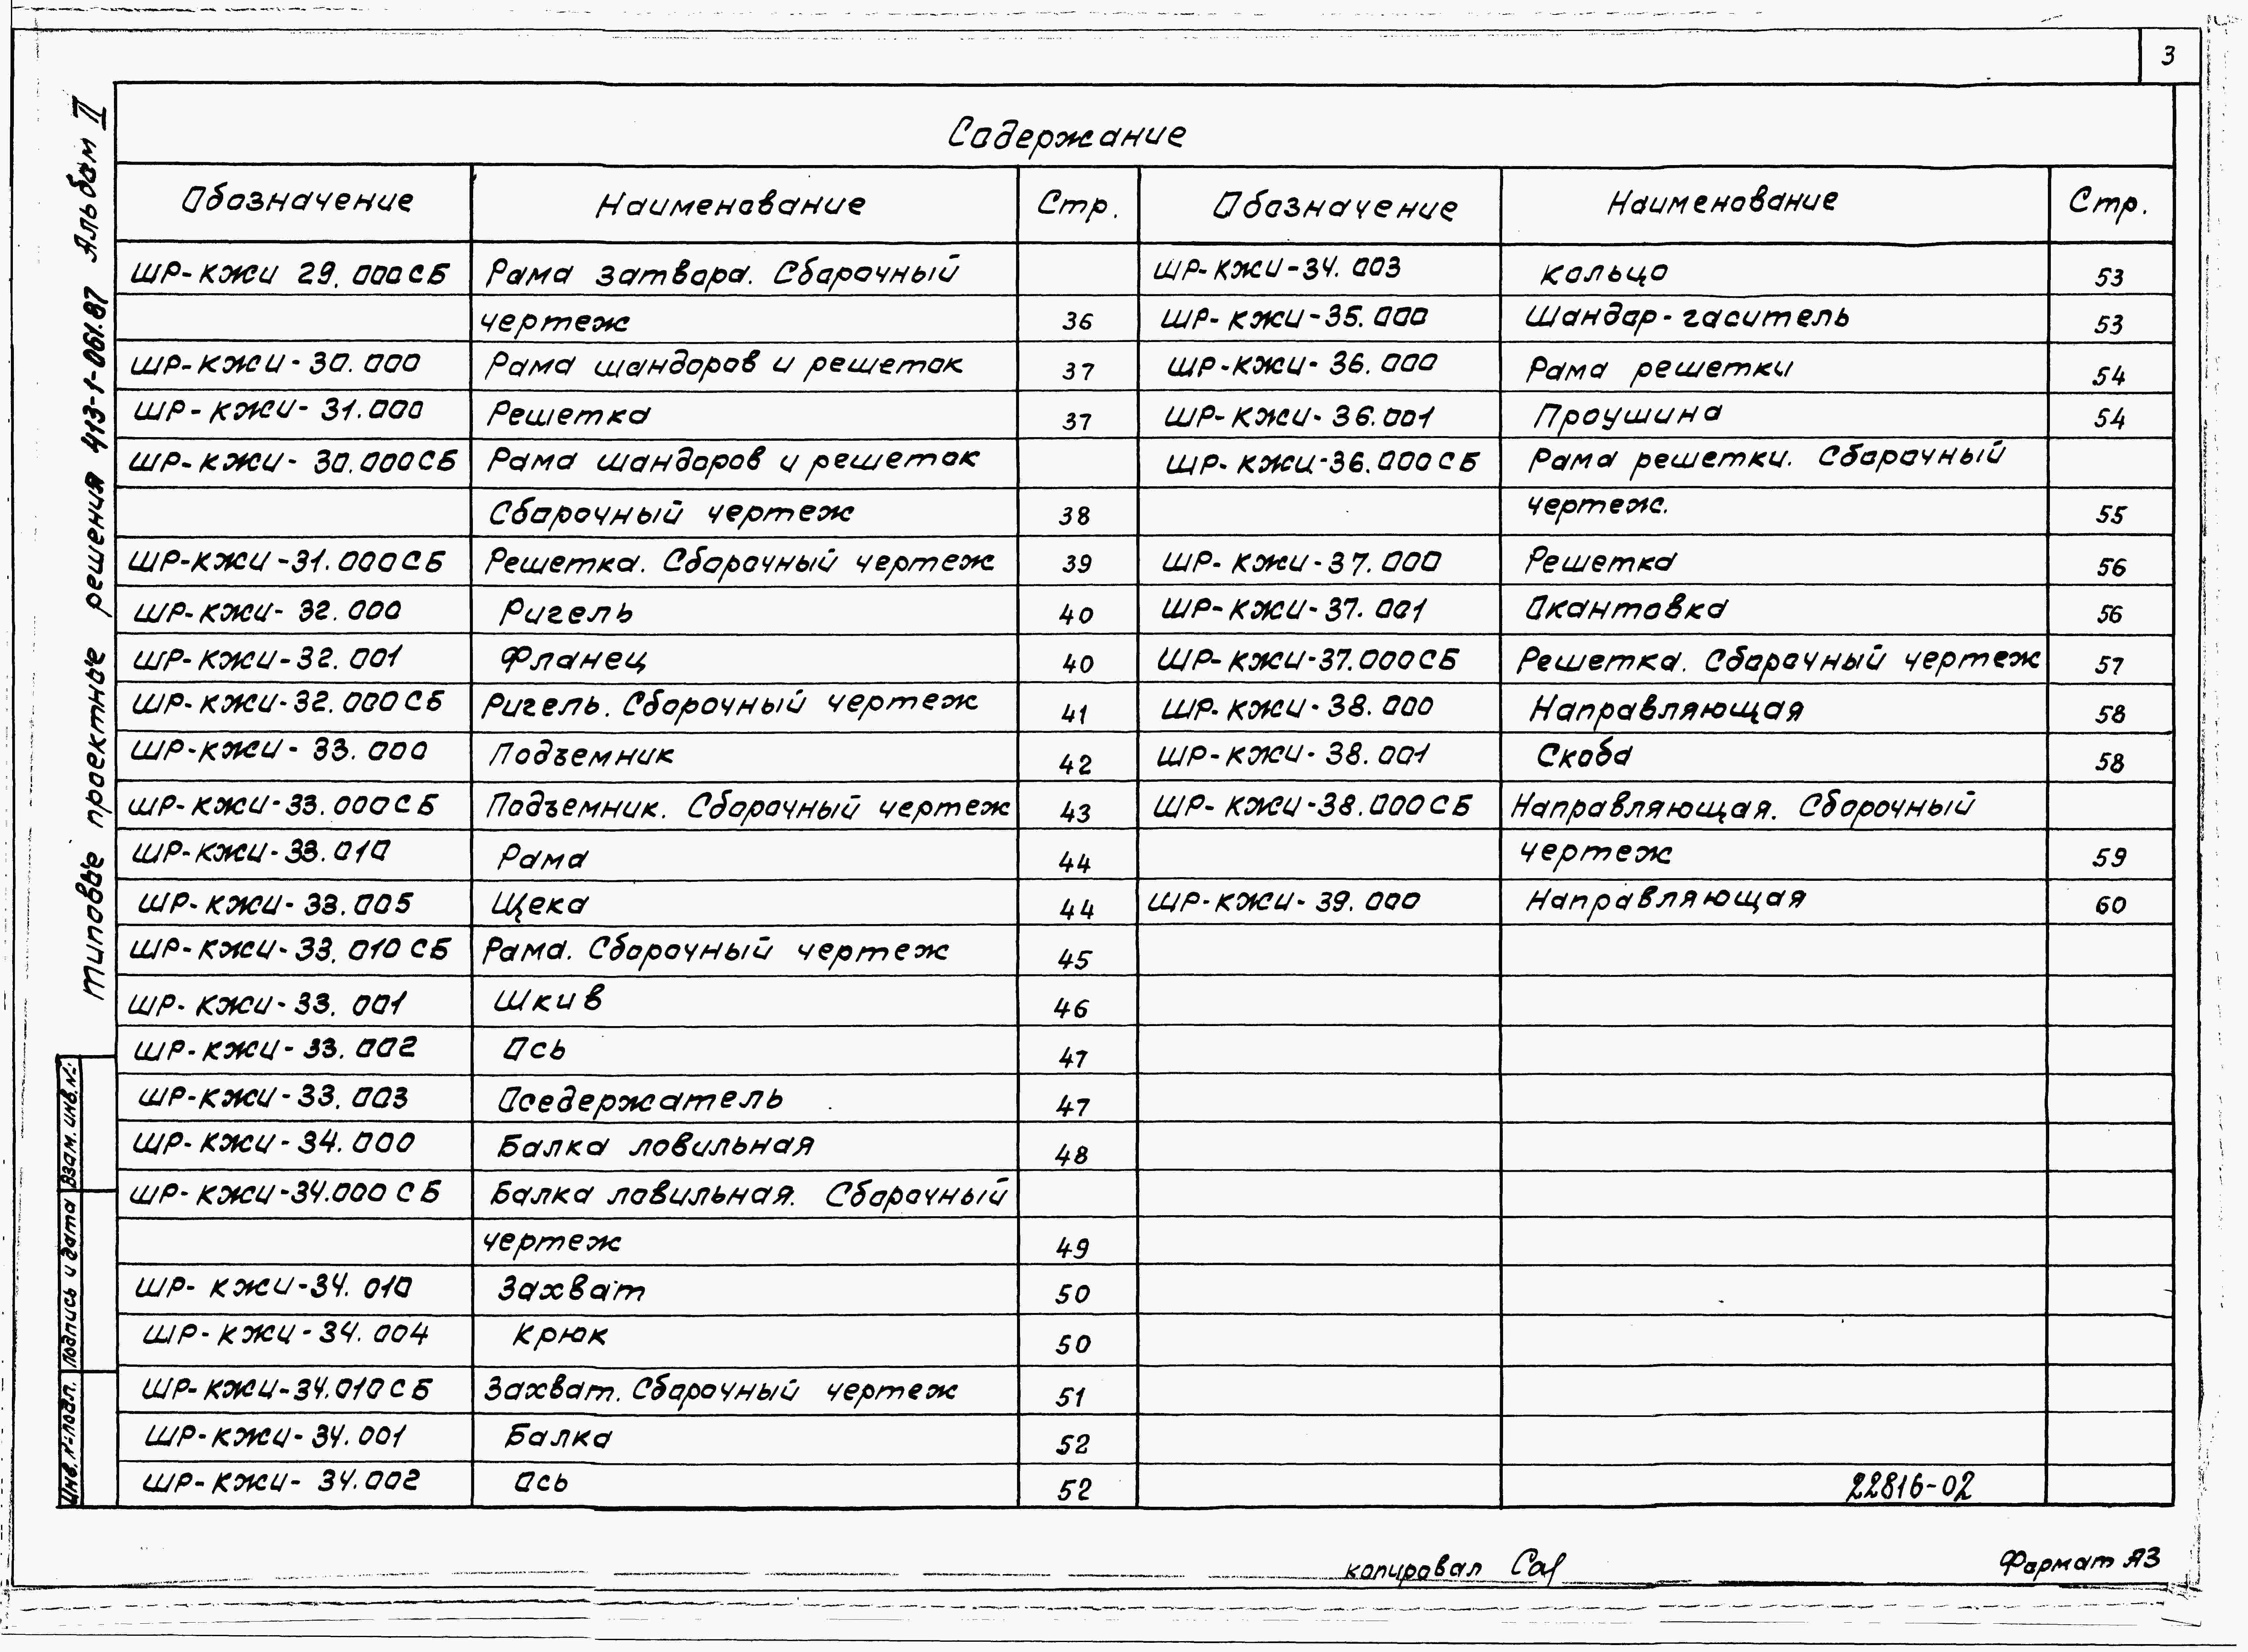 3
Типовые проектные решения 413-1-061.87 Альбом II
Содержание
Обозначение Наименование Стр. Обозначение Наименование Стр.
ШР-КЖИ 29.000СБ Рама затвора. Сборочный ШР-КЖИ-34.003 Кольцо 53
чертеж 36 ШР-КЖИ-35.000 Шандор-гаситель 53
ШР-КЖИ-30.000 Рама шандоров и решеток 37 ШР-КЖИ-36.000 Рама решетки 54
ШР-КЖИ-31.000 Решетка 37 ШР-КЖИ-36.001 Проушина 54
ШР-КЖИ-30.000СБ Рама шандоров и решеток ШР-КЖИ-36.000СБ Рама решетки. Сборочный
Сборочный чертеж 38 чертеж. 55
ШР-КЖИ-31.000СБ Решетка. Сборочный чертеж 39 ШР-КЖИ-37.000 Решетка 56
ШР-КЖИ-32.000 Ригель 40 ШР-КЖИ-37.001 Окантовка 56
ШР-КЖИ-32.001 Фланец 40 ШР-КЖИ-37.000СБ Решетка. Сборочный чертеж 57
ШР-КЖИ-32.000СБ Ригель. Сборочный чертеж 41 ШР-КЖИ-38.000 Направляющая 58
ШР-КЖИ-33.000 Подъемник 42 ШР-КЖИ-38.001 Скоба 58
ШР-КЖИ-33.000СБ Подъемник. Сборочный чертеж 43 ШР-КЖИ-38.000СБ Направляющая. Сборочный
ШР-КЖИ-33.010 Рама 44 чертеж 59
ШР-КЖИ-33.005 Щека 44 ШР-КЖИ-39.000 Направляющая 60
ШР-КЖИ-33.010СБ Рама. Сборочный чертеж 45
ШР-КЖИ-33.001 Шкив 46
ШР-КЖИ-33.002 Ось 47
ШР-КЖИ-33.003 Оседержатель 47
ШР-КЖИ-34.000 Балка ловильная 48
ШР-КЖИ-34.000СБ Балка ловильная. Сборочный
чертеж 49
ШР-КЖИ-34.010 Захват 50
ШР-КЖИ-34.004 Крюк 50
ШР-КЖИ-34.010СБ Захват. Сборочный чертеж 51
ШР-КЖИ-34.001 Балка 52
ШР-КЖИ-34.002 Ось 52
22816-02
Инв.№подл. Подпись и дата Взам.инв.№
копировал
Формат А3